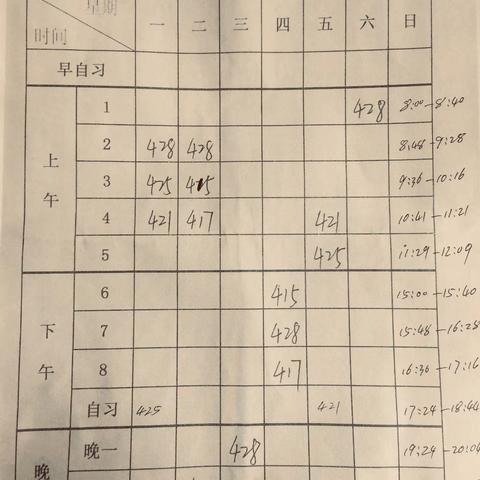 星期
时间 一 二 三 四 五 六 日
早自习
上午
1 428 8:00-8:40
2 428 428 8:48-9:28
3 425 415 9:36-10:16
4 421 417 421 10:41-11:21
5 425 11:29-12:09
下午
6 415 15:00-15:40
7 428 15:48-16:28
8 417 16:36-17:16
自习 425 421 17:24-18:44
晚
晚一 428 19:24-20:04